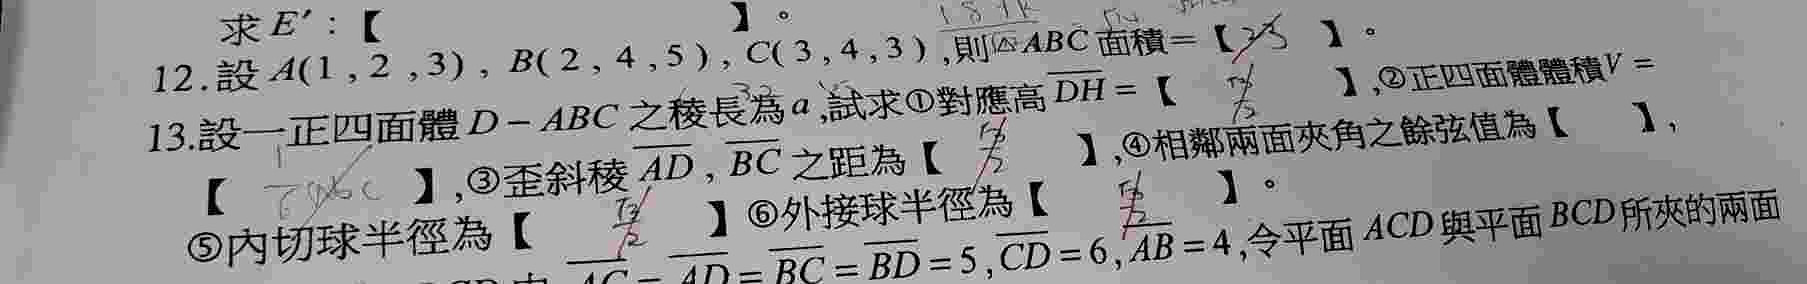 求E′:【 】。
12.設A(1,2,3), B(2,4,5), C(3,4,3),則△ABC面積=【 】。
13.設一正四面體D-ABC之稜長為a,試求①對應高DH=【 】,②正四面體體積V=
【 】,③歪斜稜AD,BC之距為【 】,④相鄰兩面夾角之餘弦值為【 】,
⑤內切球半徑為【 】⑥外接球半徑為【 】。
AC=AD=BC=BD=5,CD=6,AB=4,令平面ACD與平面BCD所夾的兩面